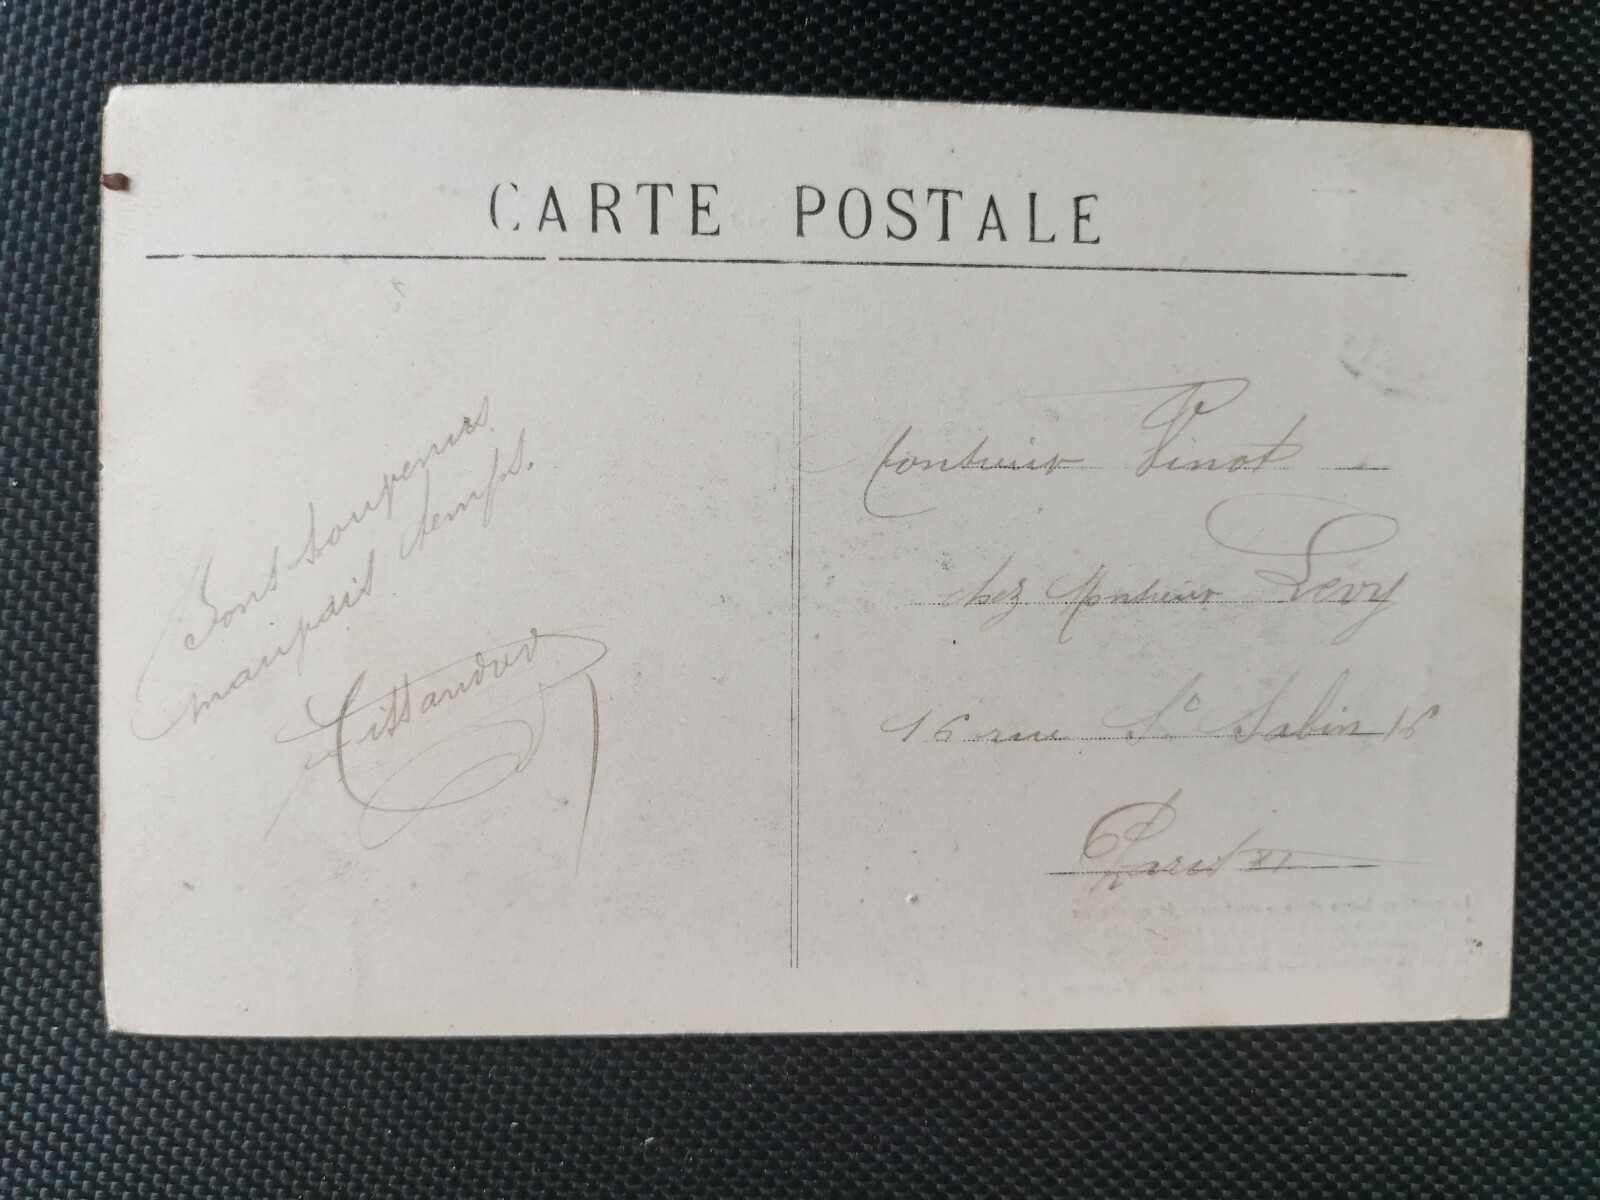 CARTE POSTALE
Bons souvenirs
mauvais temps.
Tissandier
Monsieur Pinot
chez Monsieur Lévy
16 rue St Sabin 16
Paris XI